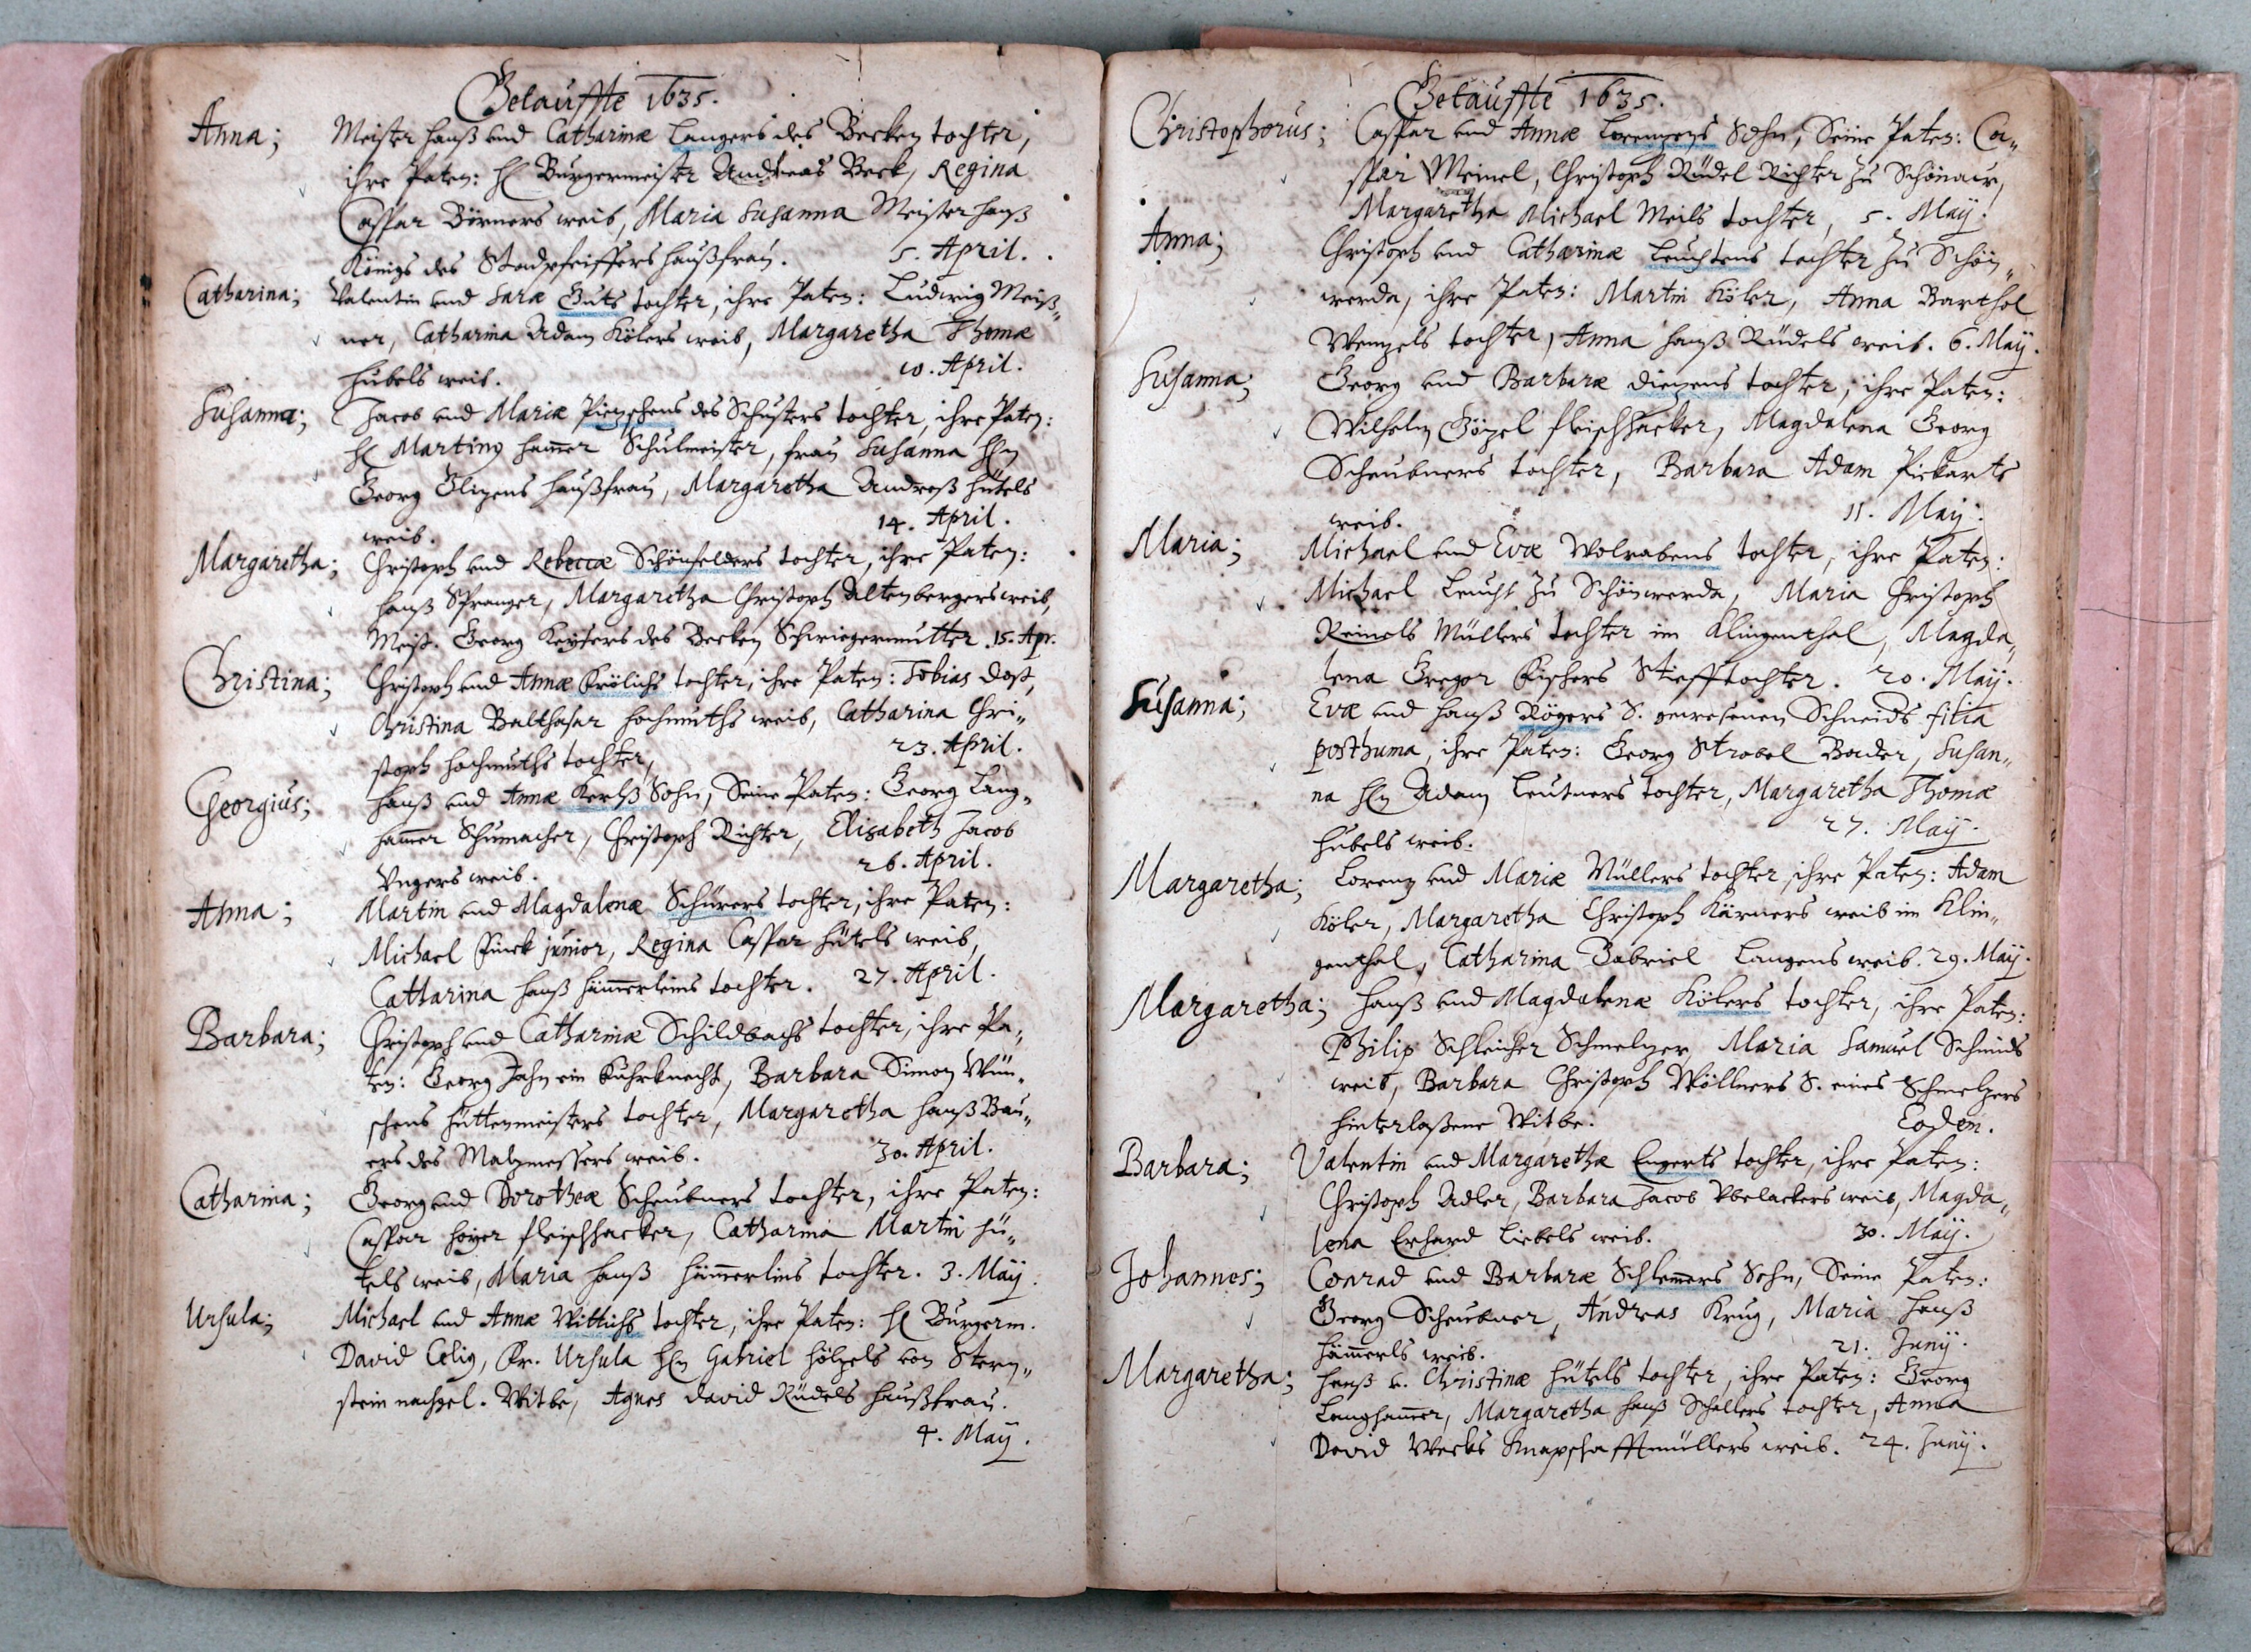 Getauffte 1635.
Anna; Meister Hanß und Catharinæ Langers des Becken tochter,
ihre Paten: H Burgermeister Andreas Beck, Regina
Caspar Börners weib, Maria Susanna Meister Hanß
Königs des Stadpfeiffers haußfrau. 5. April.
Catharina; Valentin und Saræ Guts tochter, ihre Paten: Ludwig Meiß„
ner, Catharina Adam Kölers weib, Margaretha Thomæ
Hubels weib. 10. April.
Susanna; Jacob und Mariæ Pienschens des Schusters tochter, ihre Paten:
H Martinus Hamer Schulmeister, frau Susanna Hn
Georg haußfrau, Margaretha Andreß Hütels
weib. 14. April.
Margaretha; Christoph und Rebeccæ Schönfelders tochter, ihre Paten:
Hanß Spranger, Margaretha Christoph Altenbergers weib,
Meist. Georg Keysers des Becken Schwiegermutter. 15. Apr.
Christina; Christoph und Annæ Frölichs tochter, ihre Paten: Tobias Dost,
Christina Balthasar Hochmuths weib, Catharina Chri„
stoph Hochmuths tochter, 23. April.
Georgius; Hanß und Annæ Sohn, Seine Paten: Georg Lang„
hamer Schumacher, Christoph Richter, Elisabeth Jacob
Ungers weib. 26. April.
Anna; Martin und Magdalenæ Schürers tochter, ihre Paten:
Michael Finck junior, Regina Caspar Hütels weib,
Catharina Hanß Hämerleins tochter. 27. April.
Barbara; Christoph und Catharinæ Schildbachs tochter, ihre Pa„
ten: Georg Jahn ein Fuhrknecht, Barbara Simon Wün„
schens Hüttenmeisters tochter, Margaretha Hanß Bau„
ers des Malzmessers weib. 30. April.
Catharina; Georg und Dorotheæ Scheubners tochter, ihre Paten:
Caspar Hoyer fleischhacker, Catharina Martin Hü„
tels weib, Maria Hanß Hämerlins tochter. 3. Maij.
Ursula; Michael und Annæ Wittichs tochter, ihre Paten: H Burgerm.
David Celius, Fr. Ursula Hn Gabriel Hölzels von Stern„
stein nachgel. Witbe, Agnes David Rüdels haußfrau.
4. Maij.
Getauffte 1635.
Christophorus; Caspar und Annæ Lorenzens Sohn, Seine Paten: Ca„
spar Meinel, Christoph Rüdel Richter zu Schönaw,
Margaretha Michael Meils tochter, 5. Maij.
Anna; Christoph und Catharinæ Leuchtens tochter zu Schön„
werda, ihre Paten: Martin Köler, Anna Barthol
Wenzels tochter, Anna Hanß Rüdels weib. 6. Maij.
Susanna; Georg und Barbaræ Diezens tochter, ihre Paten:
Wilhelm Gözel fleischhacker, Magdalena Georg
Scheubners tochter, Barbara Adam Pickarts
weib. 11. Maij.
Maria; Michael und Evæ Wolrabens tochter, ihre Paten:
Michael Leucht zu Schönwerda, Maria Christoph
Reinels Müllers tochter im Klingenthal, Magda„
lena Gregor Fischers Stiefftochter. 20. Maij.
Susanna; Evæ und Hanß Rögers S. gewesenen Schneids filia
posthuma, ihre Paten: Georg Strobel Bader, Susan„
na Hn Adam Leutners tochter, Margaretha Thomæ
Hubels weib. 27. Maij.
Margaretha; Lorenz und Mariæ Müllers tochter, ihre Paten: Adam
Köler, Margaretha Christoph Kärners weib im Klin„
genthal, Catharina Gabriel Langens weib. 29. Maij.
Margaretha; Hanß und Magdalenæ Kölers tochter, ihre Paten:
Philip Schleicher Schmelzer, Maria Samuel Schmids
weib, Barbara Christoph Wöllners S. eines Schmelzers
hinterlaßene Witbe. Eodem.
Barbara; Valentin und Margarethæ Engerts tochter, ihre Paten:
Christoph Adler, Barbara Jacob Ubelackers weib, Magda„
lena Erhard Liebels weib. 30. Maij.
Johannes; Conrad und Barbaræ Schlemers Sohn, Seine Paten:
Georg Scheubner, Andreas Krug, Maria Hanß
Hämerls weib. 21. Junij.
Margaretha; Hanß u. Christinæ Hütels tochter, ihre Paten: Georg
Langhamer, Margaretha Hanß Schellers tochter, Anna
David Wecks Knapschafftmüllers weib. 24. Junij.